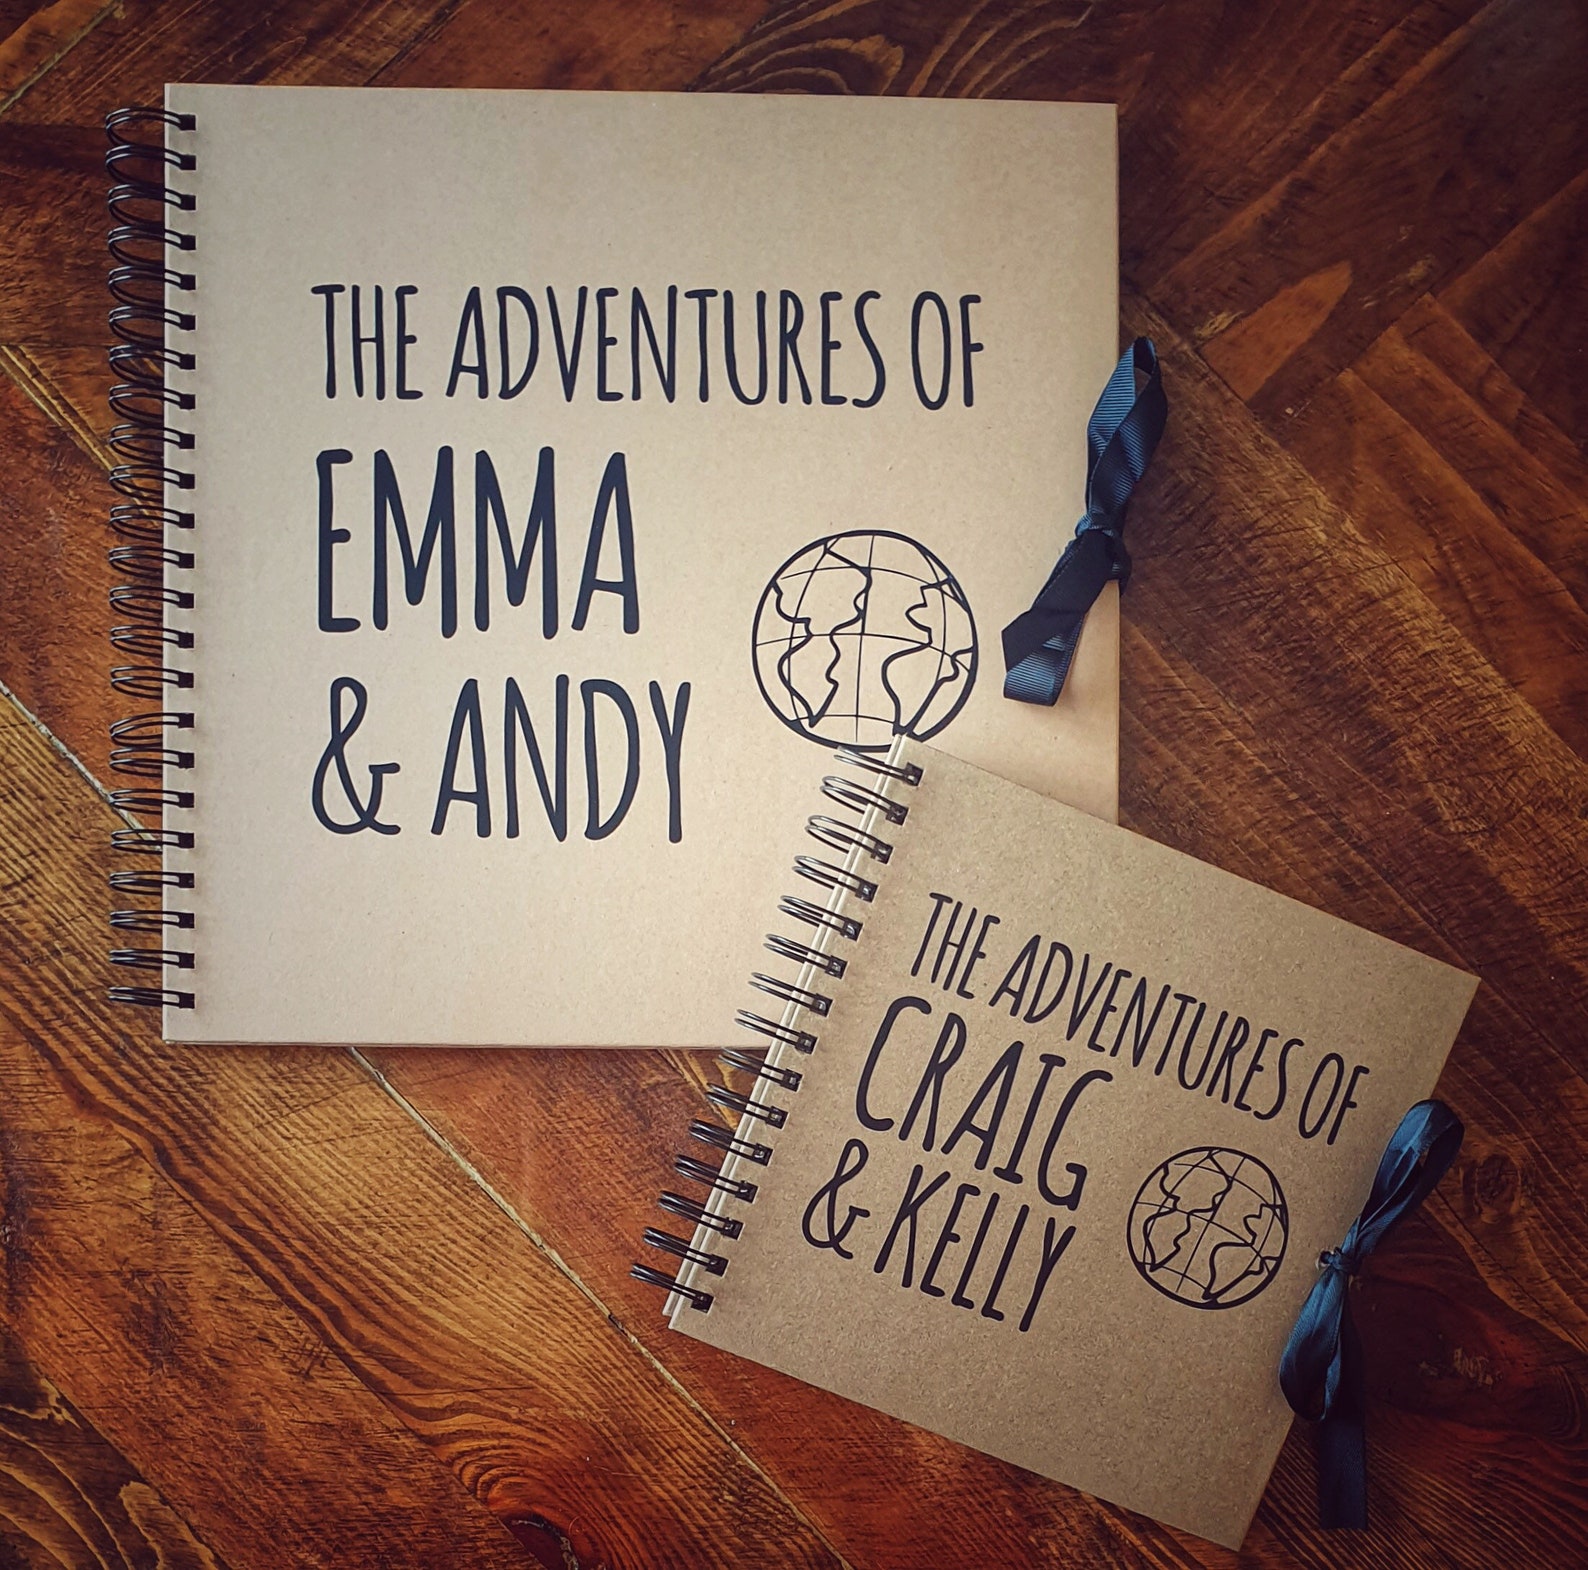 THE ADVENTURES OF
EMMA
& ANDY
THE ADVENTURES OF
CRAIG
& KELLY